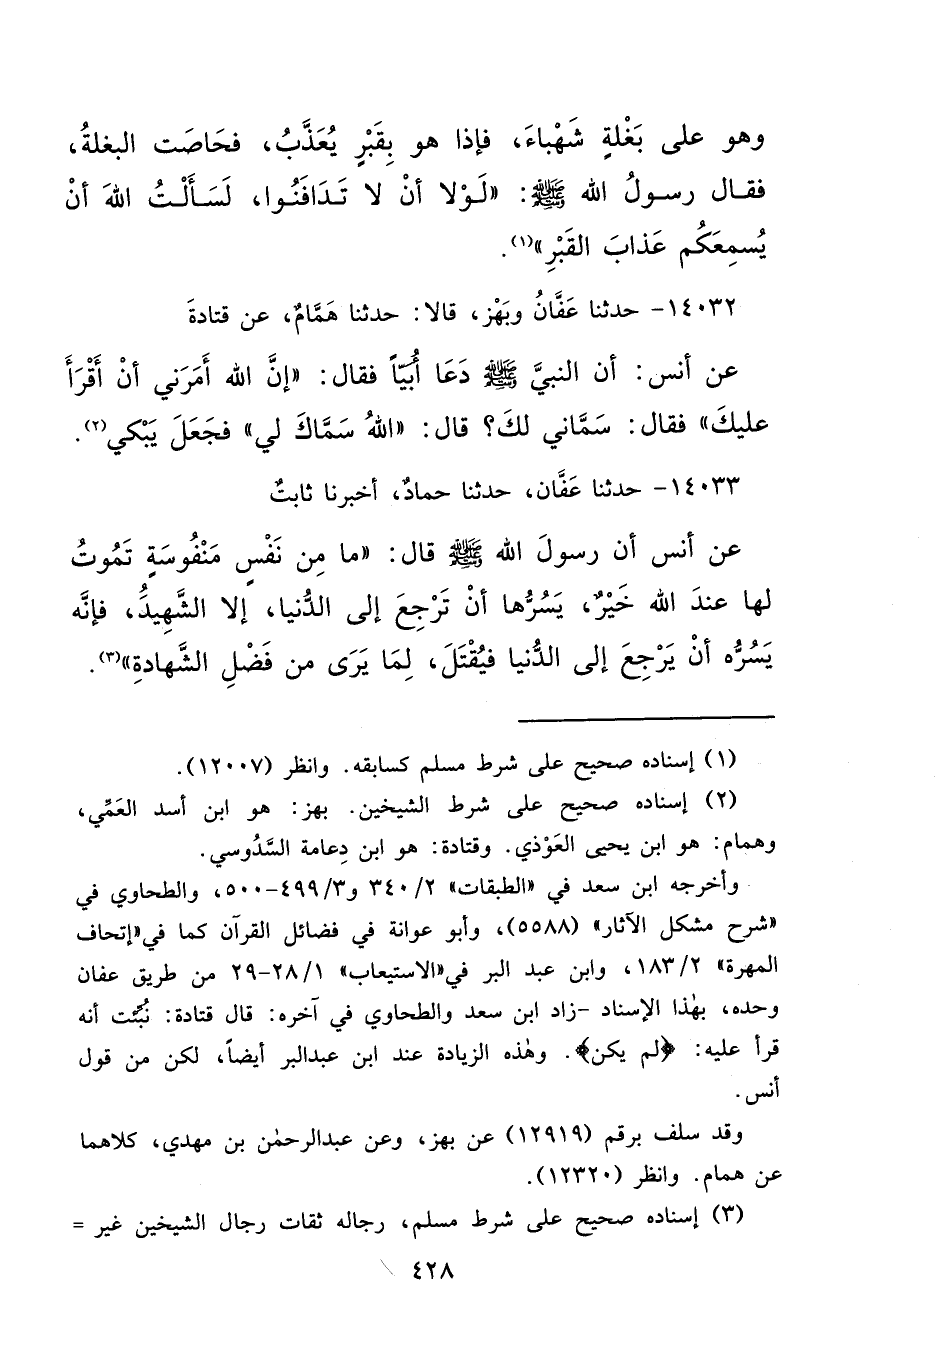 وهو على بَغْلةٍ شَهْباءَ، فإذا هو بِقَبْرٍ يُعَذَّبُ، فحَاصَت البغلةُ،
فقال رسولُ الله ﷺ: «لَوْلا أنْ لا تَدَافَنُوا، لَسَأَلْتُ اللهَ أنْ
يُسمِعَكُم عَذابَ القَبْرِ»(١).
١٤٠٣٢- حدثنا عَفَّانُ وبَهْز، قالا: حدثنا هَمَّامٌ، عن قتادةَ
عن أنس: أن النبيَّ ﷺ دَعَا أُبَيّاً فقال: «إنَّ الله أَمَرَني أنْ أَقْرَأَ
عليكَ» فقال: سَمَّاني لكَ؟ قال: «اللهُ سَمَّاكَ لي» فجَعَلَ يَبْكي(٢).
١٤٠٣٣- حدثنا عَفَّان، حدثنا حمادٌ، أخبرنا ثابتٌ
عن أنس أن رسولَ الله ﷺ قال: «ما مِن نَفْسٍ مَنْفُوسَةٍ تَمُوتُ
لها عندَ الله خَيْرٌ، يَسُرُّها أنْ تَرْجِعَ إلى الدُّنيا، إلا الشَّهِيدُ، فإنَّه
يَسُرُّه أنْ يَرْجِعَ إلى الدُّنيا فيُقْتَلَ، لِمَا يَرَى من فَضْلِ الشَّهادةِ»(٣).
(١) إسناده صحيح على شرط مسلم كسابقه. وانظر (١٢٠٠٧).
(٢) إسناده صحيح على شرط الشيخين. بهز: هو ابن أسد العَمِّي،
وهمام: هو ابن يحيى العَوْذي. وقتادة: هو ابن دِعامة السَّدُوسي.
وأخرجه ابن سعد في «الطبقات» ٣٤٠/٢ و٤٩٩/٣-٥٠٠، والطحاوي في
«شرح مشكل الآثار» (٥٥٨٨)، وأبو عوانة في فضائل القرآن كما في«إتحاف
المهرة» ١٨٣/٢، وابن عبد البر في«الاستيعاب» ٢٨/١-٢٩ من طريق عفان
وحده، بهٰذا الإسناد -زاد ابن سعد والطحاوي في آخره: قال قتادة: نُبِّئت أنه
قرأ عليه: ﴿لم يكن﴾. وهٰذه الزيادة عند ابن عبدالبر أيضاً، لكن من قول
أنس.
وقد سلف برقم (١٢٩١٩) عن بهز، وعن عبدالرحمٰن بن مهدي، كلاهما
عن همام. وانظر (١٢٣٢٠).
(٣) إسناده صحيح على شرط مسلم، رجاله ثقات رجال الشيخين غير =
٤٢٨